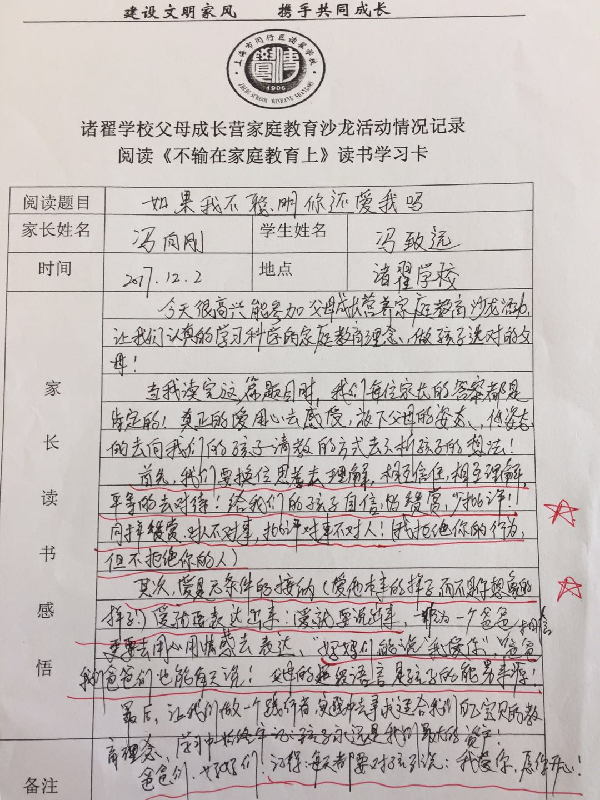 建设文明家风 携手共同成长
上海市闵行区诸翟学校
1906
诸翟学校父母成长营家庭教育沙龙活动情况记录
阅读《不输在家庭教育上》读书学习卡
阅读题目 如果我不聪明你还爱我吗
家长姓名 冯向刚 学生姓名 冯致远
时间 2017.12.2 地点 诸翟学校
家长读书感悟
今天很高兴能参加父母成长营养家庭教育沙龙活动,
让我们认真的学习科学的家庭教育理念、做孩子选对的父
母!
当我读完这篇题目时,我们每位家长的答案都是
肯定的!真正的爱用心去感受,放下父母的姿态、低姿态
的去向我们的孩子请教的方式去了解孩子的想法!
首先,我们要换位思考去理解,相互信任,相互理解,
平等的去对待!给我们的孩子自信的赞赏,少批评!
同样赞赏,对人不对事,批评对事不对人!(我拒绝你的行为,
但不拒绝你的人)
其次,爱是无条件的接纳(爱他本来的样子而不是你想象的
样子)爱就要表达出来;爱就要说出来,都为一个爸爸
要去用心用情感去表达,“妈妈们的说‘我爱你’”
我们爸爸们也能每天说!父母的语言是孩子的能量来源!
最后,让我们做一个践行者,实践中去寻找适合我们自己宝贝的教
育理念,孩子永远是我们最大的资产!
爸爸们,妈妈们!记得:每天都要对孩子说:我爱你,愿你开心!
备注